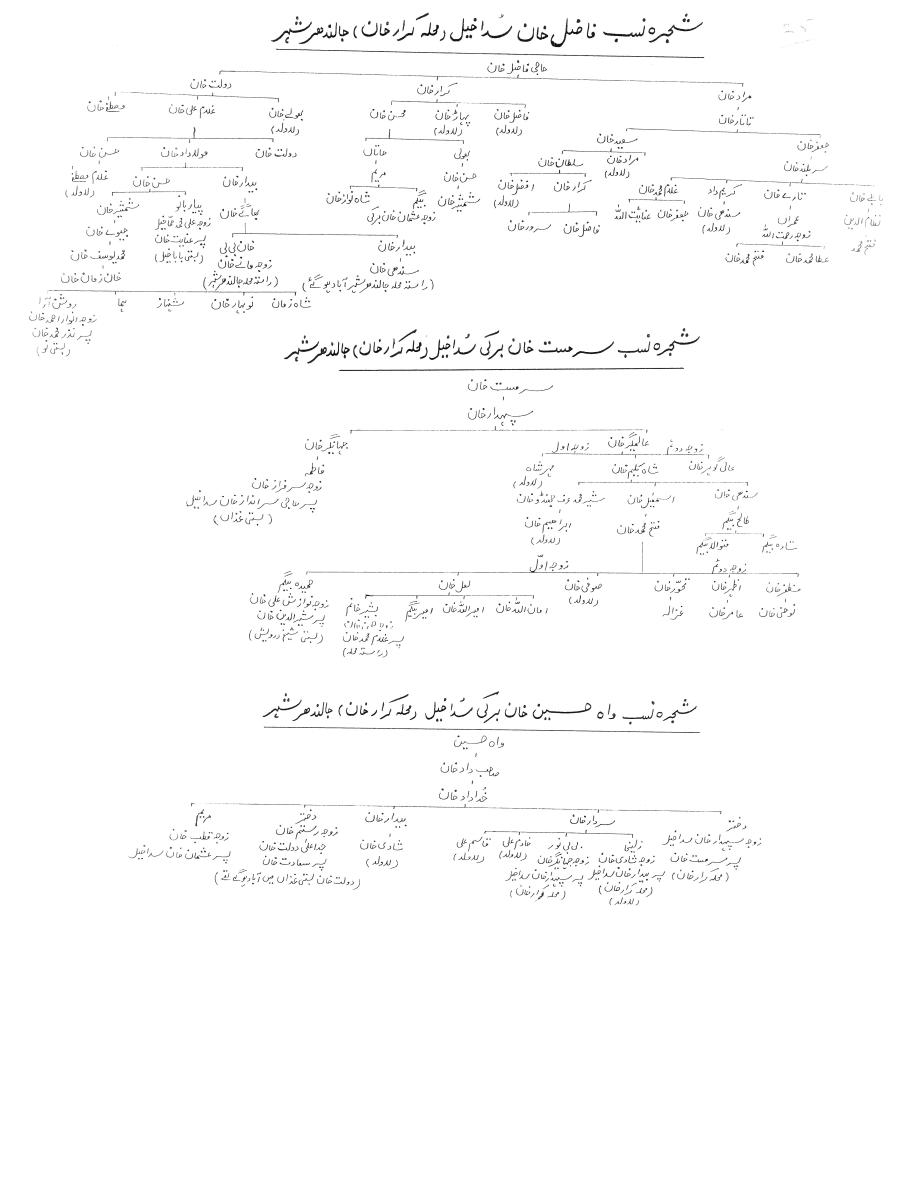 شجرہ نسب فاضل خان سُداخیل (محلہ کرار خان) جالندھر شہر
حاجی فاضل خان
مراد خان کرار خان دولت خان
تاتار خان
فاضل خان پہاڑ خان محسن خان بولے خان غلام علی خان مصطفےٰ خان
(لاولد) (لاولد) (لاولد)
جعفر خان سعید خان
بولی خاناں دولت خان فولاد داد خان حسن خان
سربلند خان مراد خان سلطان خان
(لاولد)
حسن خان مریم بیدار خان حسن خان غلام مصطفےٰ
(لاولد)
بابے خان تارے خان کریم داد غلام محمد خان کرار خان افضل خان
(لاولد)
شمشیر خان بیگم شاہ نواز خان پیار بانو شمشیر خان
نظام الدین عمراں سندھی خان جعفر خان عنایت اللہ فاضل خان سرور خان
زوجہ عثمان خان برکی
زوجہ رحمت اللہ (لاولد)
فتح محمد
عطا محمد خان فتح محمد خان
جیوے خان
پسر عنایت خان
بیدار خان خان بی بی
سندھی خان
(راستہ محلہ جالندھر شہر آباد ہو گئے) (راستہ محلہ جالندھر شہر)
(بستی بابا خیل)
محمد یوسف خان
خان زمان خان
شاہ زمان نوبہار خان شہناز ہما روشن آرا
زوجہ انوار احمد خان
پسر نذر محمد خان
(بستی نو)
شجرہ نسب سرمست خان برکی سُداخیل (محلہ کرار خان) جالندھر شہر
سرمست خان
سپہدار خان
عالمگیر خان جہانگیر خان
زوجہ دوئم زوجہ اول
عالی گوہر خان شاہ بیگم خان مہر شاہ فاطمہ
(لاولد)
زوجہ سرفراز خان
پسر حاجی سرانداز خان سداخیل
(بستی غذاں)
سندھی خان اسمعٰیل خان شیر محمد عرف جھنڈو خان
فتح محمد خان ابراہیم خان
(لاولد)
شادہ بیگم
زوجہ دوئم زوجہ اوّل
مظفر خان اظہر خان صوفی خان لعل خان حمیدہ بیگم
(لاولد)
عامر خان غزالہ امان اللہ خان امیر اللہ خان امیر بیگم بشیر خانم
زوجہ نوازش علی خان
پسر بشیر الدین خان
(بستی شیخ درویش)
پسر غلام محمد خان
(راستہ محلہ)
شجرہ نسب واہ حسین خان برکی سُداخیل (محلہ کرار خان) جالندھر شہر
واہ حسین
صاحب داد خان
خُداداد خان
دختر سردار خان بیدار خان دختر مریم
زوجہ سپہدار خان سداخیل زلیخا بی بی نور خادم علی قاسم علی شادی خان زوجہ رستم خان زوجہ قطب خان
(لاولد) (لاولد) (لاولد)
پسر سرمست خان زوجہ شادی خان زوجہ جہانگیر خان جد اعلیٰ دولت خان پسر عثمان خان سداخیل
(محلہ کرار خان) پسر بیدار خان سداخیل پسر سپہدار خان سداخیل پسر سعادت خان
(محلہ کرار خان) (محلہ کرار خان) (دولت خان بستی غذاں میں آباد ہو گئے تھے)
(لاولد)